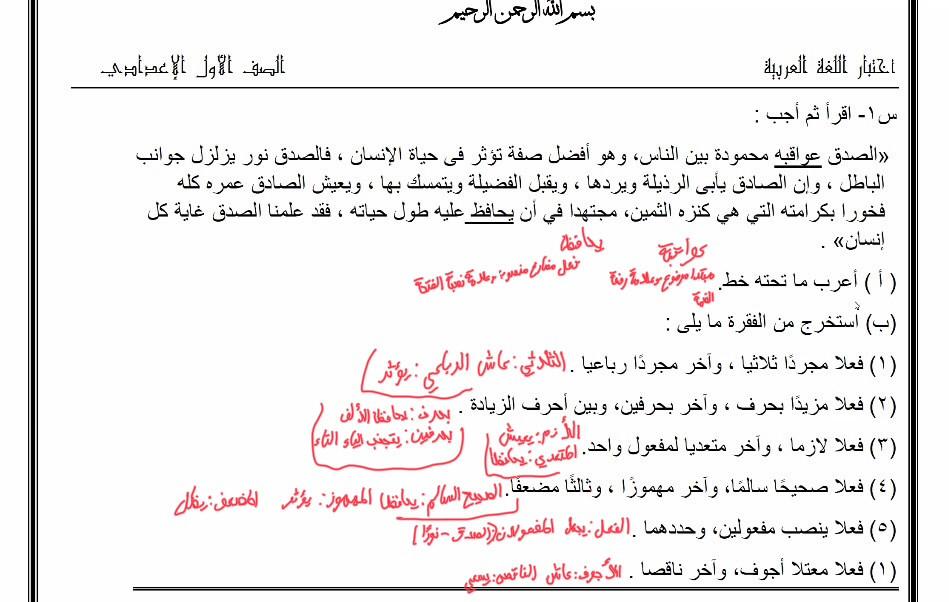 بسم الله الرحمن الرحيم
اختبار اللغة العربية
الصف الأول الإعدادي
س١- اقرأ ثم أجب :
«الصدق عواقبه محمودة بين الناس، وهو أفضل صفة تؤثر فى حياة الإنسان ، فالصدق نور يزلزل جوانب
الباطل ، وإن الصادق يأبى الرذيلة ويردها ، ويقبل الفضيلة ويتمسك بها ، ويعيش الصادق عمره كله
فخورا بكرامته التي هي كنزه الثمين، مجتهدا في أن يحافظ عليه طول حياته ، فقد علمنا الصدق غاية كل
إنسان» .
يحافظ
فعل مضارع منصوب وعلامة نصبة الفتحة
مبتدا مرفوع وعلامة رفعة
الضمة
( أ ) أعرب ما تحته خط.
(ب) أستخرج من الفقرة ما يلى :
(١) فعلا مجردًا ثلاثيا ، وآخر مجردًا رباعيا . الثلاثي: عاش الرباعي: يؤثر
(٢) فعلا مزيدًا بحرف ، وآخر بحرفين، وبين أحرف الزيادة . بحرف: يحافظ الألف
بحرفين: يتجنب الياء التاء
(٣) فعلا لازما ، وآخر متعديا لمفعول واحد. الأزم: يعيش
المتعدي: يحافظ
(٤) فعلا صحيحًا سالمًا، وآخر مهموزًا ، وثالثًا مضعفًا. الصحيح السالم: يحافظ المهموز: يؤثر المضعف:
(٥) فعلا ينصب مفعولين، وحددهما . الفعل: يجعل المفعولان (الصدق - نورًا)
(١) فعلا معتلا أجوف، وآخر ناقصا . الأجوف: عاش الناقص: يسعى